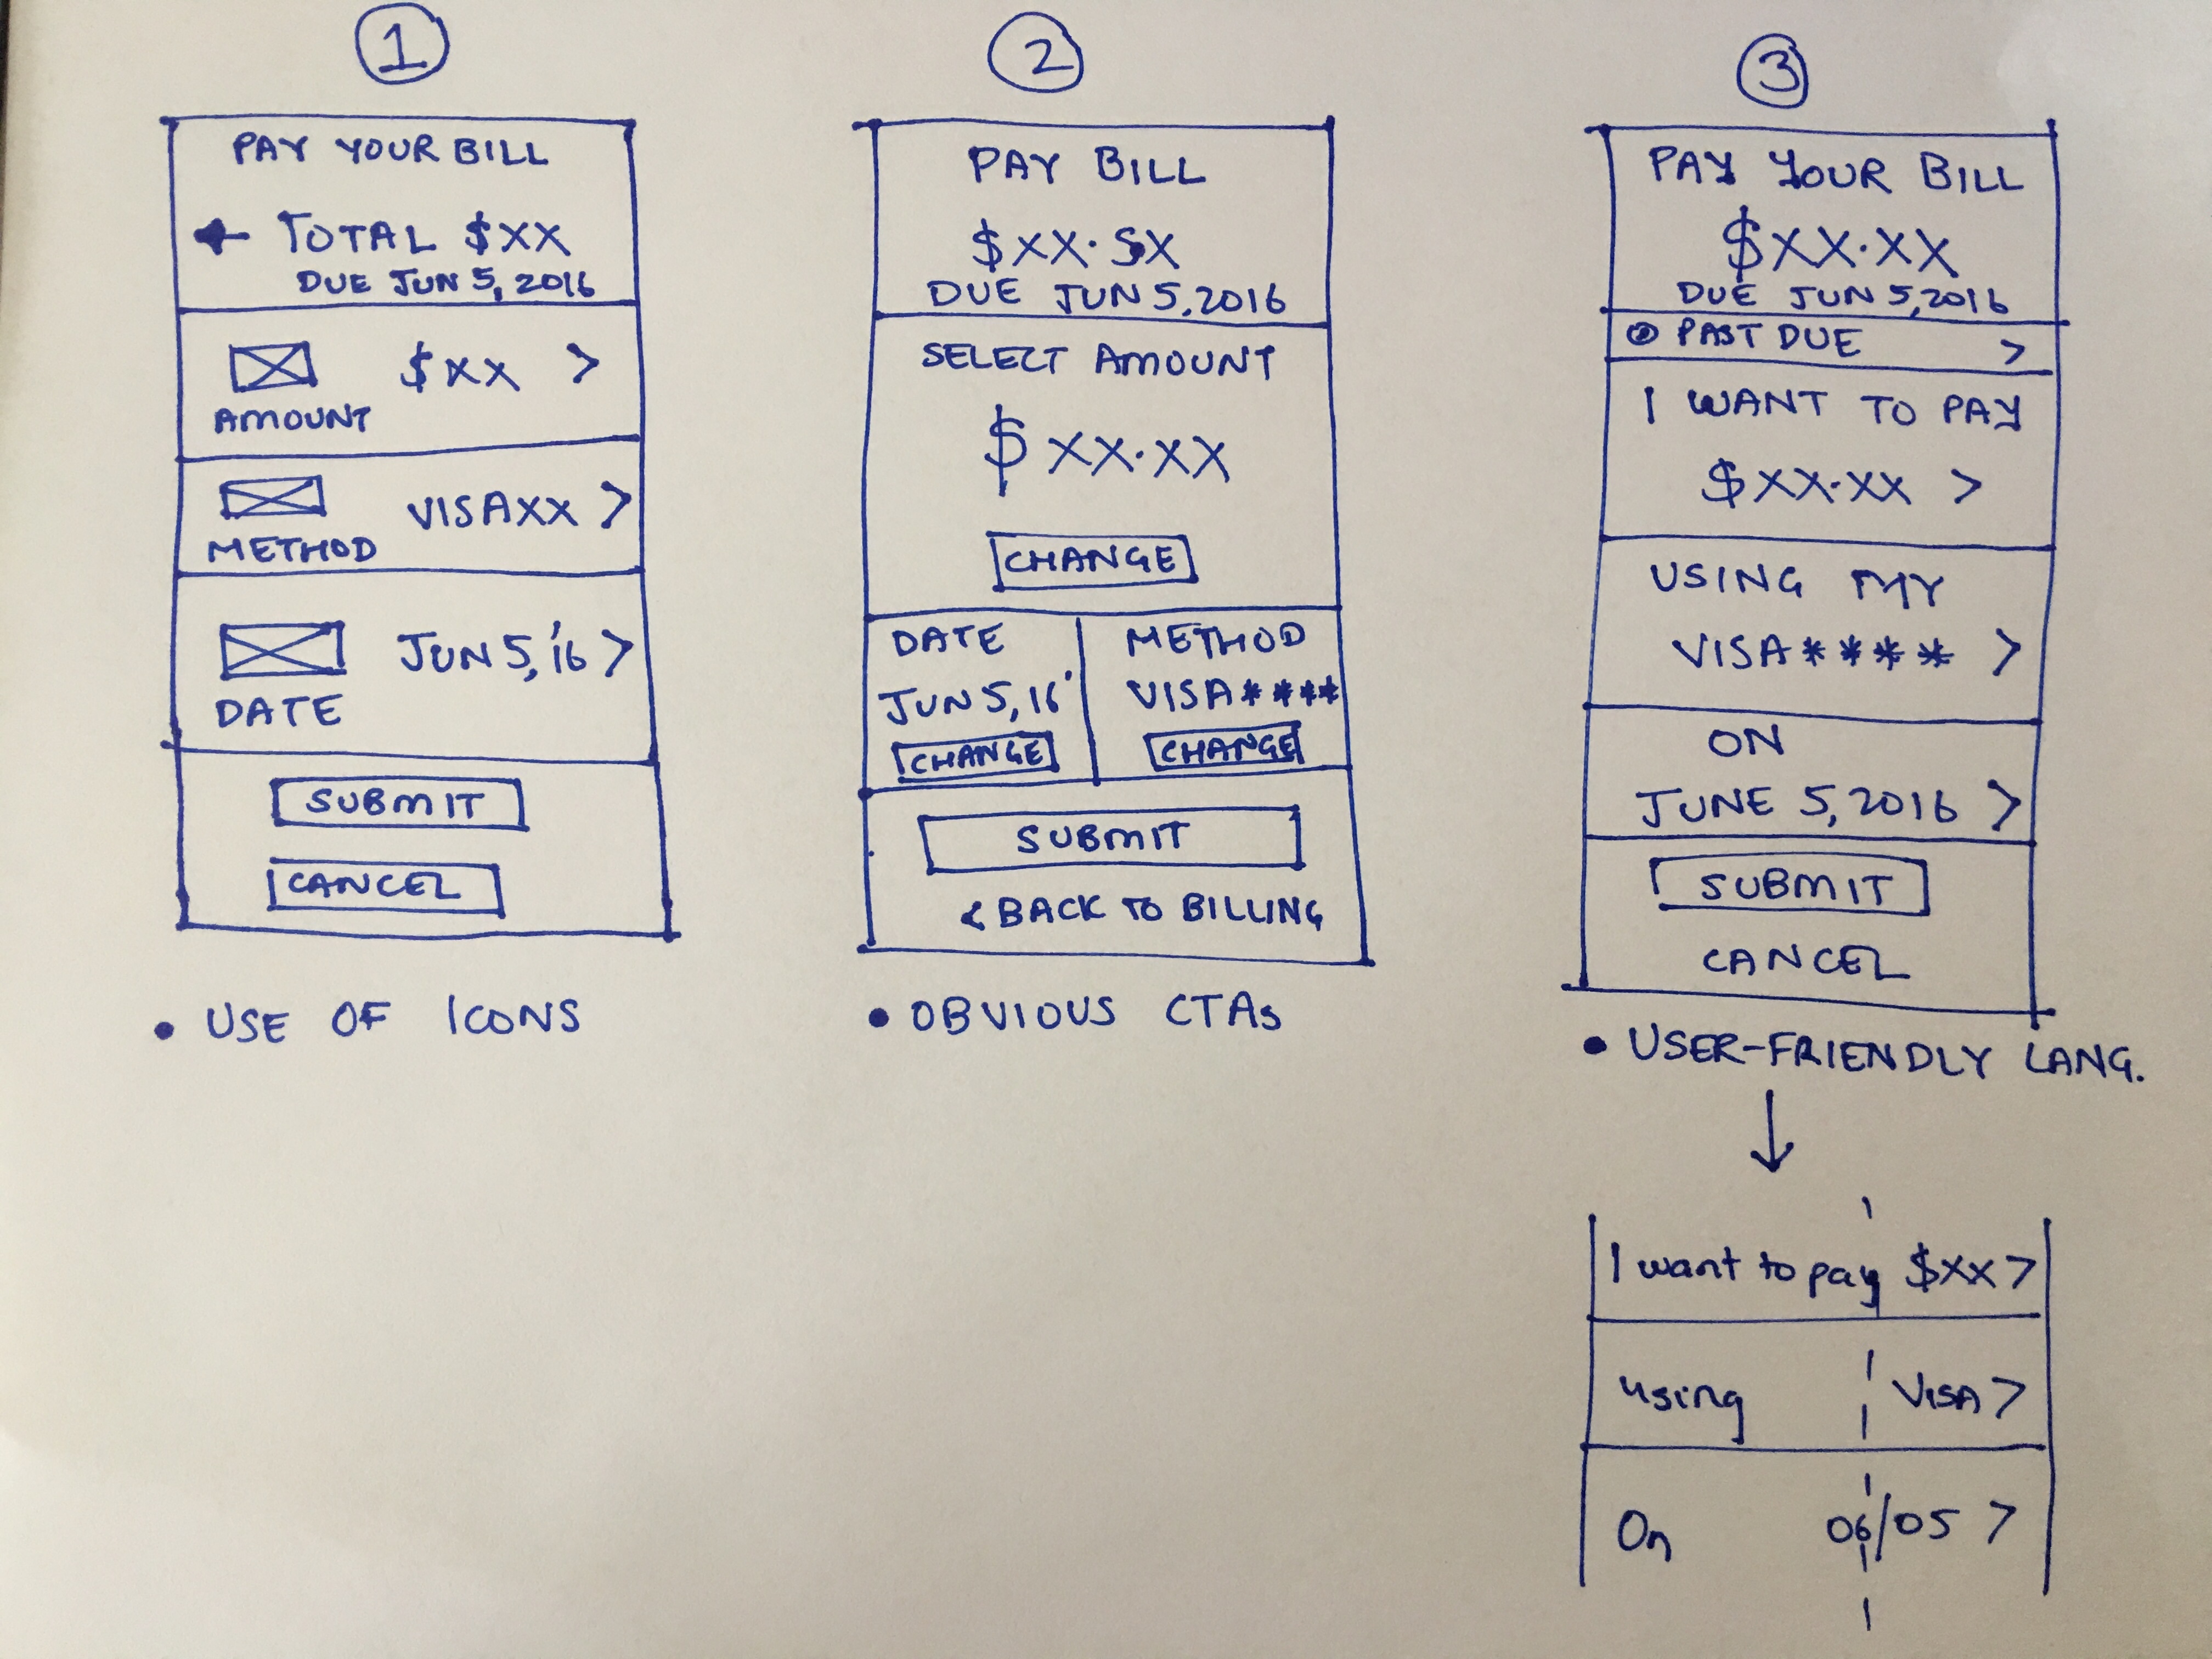 1
PAY YOUR BILL
← TOTAL $XX
DUE JUN 5, 2016
$XX >
AMOUNT
VISAXX >
METHOD
JUN 5, '16 >
DATE
SUBMIT
CANCEL
• USE OF ICONS
2
PAY BILL
$XX.XX
DUE JUN 5, 2016
SELECT AMOUNT
$XX.XX
CHANGE
DATE
JUN 5, 16'
CHANGE
METHOD
VISA****
CHANGE
SUBMIT
< BACK TO BILLING
• OBVIOUS CTAs
3
PAY YOUR BILL
$XX.XX
DUE JUN 5, 2016
PAST DUE >
I WANT TO PAY
$XX.XX >
USING MY
VISA**** >
ON
JUNE 5, 2016 >
SUBMIT
CANCEL
• USER-FRIENDLY LANG.
↓
I want to pay $XX >
using VISA >
On 06/05 >